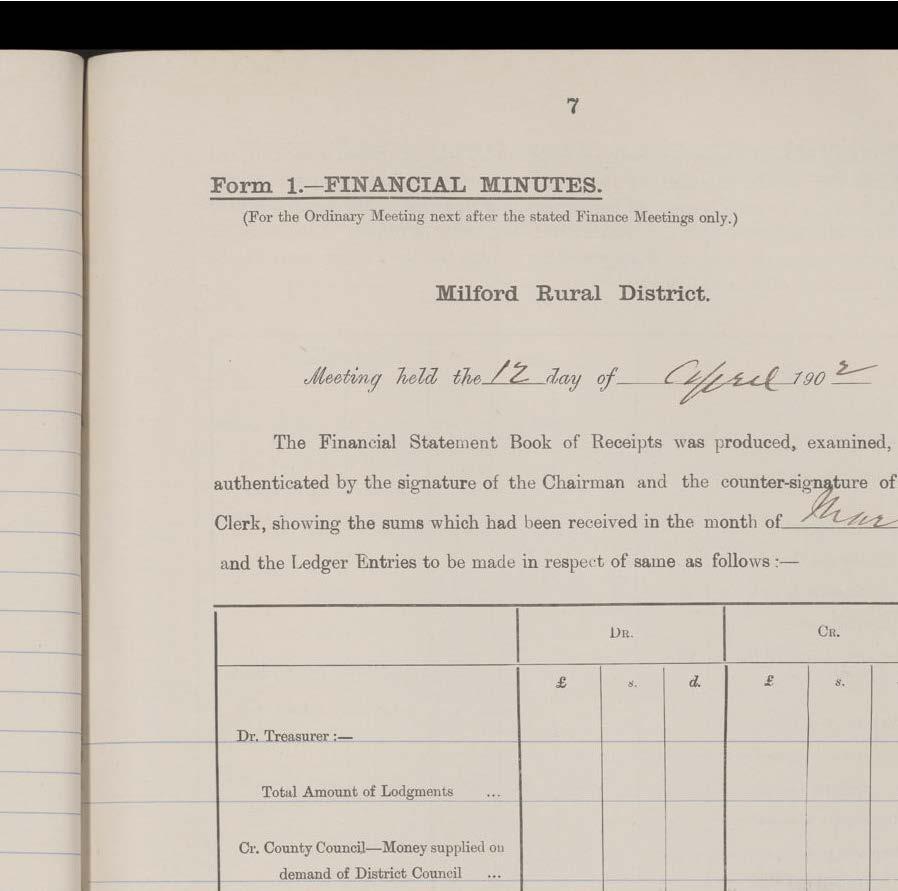 7
Form 1.—FINANCIAL MINUTES.
(For the Ordinary Meeting next after the stated Finance Meetings only.)
Milford Rural District.
Meeting held the 12 day of April 1902
The Financial Statement Book of Receipts was produced, examined,
authenticated by the signature of the Chairman and the counter-signature of
Clerk, showing the sums which had been received in the month of Mar
and the Ledger Entries to be made in respect of same as follows :—
DR. CR.
£ s. d. £ s.
Dr. Treasurer :—
Total Amount of Lodgments ...
Cr. County Council—Money supplied on
demand of District Council ...